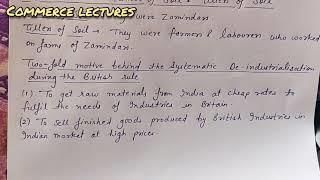 COMMERCE LECTURES
of Soil Tillers of Soil
were Zamindars.
Tillers of Soil → They were farmers & labourers who worked
on farms of Zamindars.
Two-fold motive behind the Systematic De-industrialisation
during the British rule
(1) To get raw materials from India at cheap rates to
fulfil the needs of Industries in Britain.
(2) To sell finished goods produced by British Industries in
Indian market at high prices.